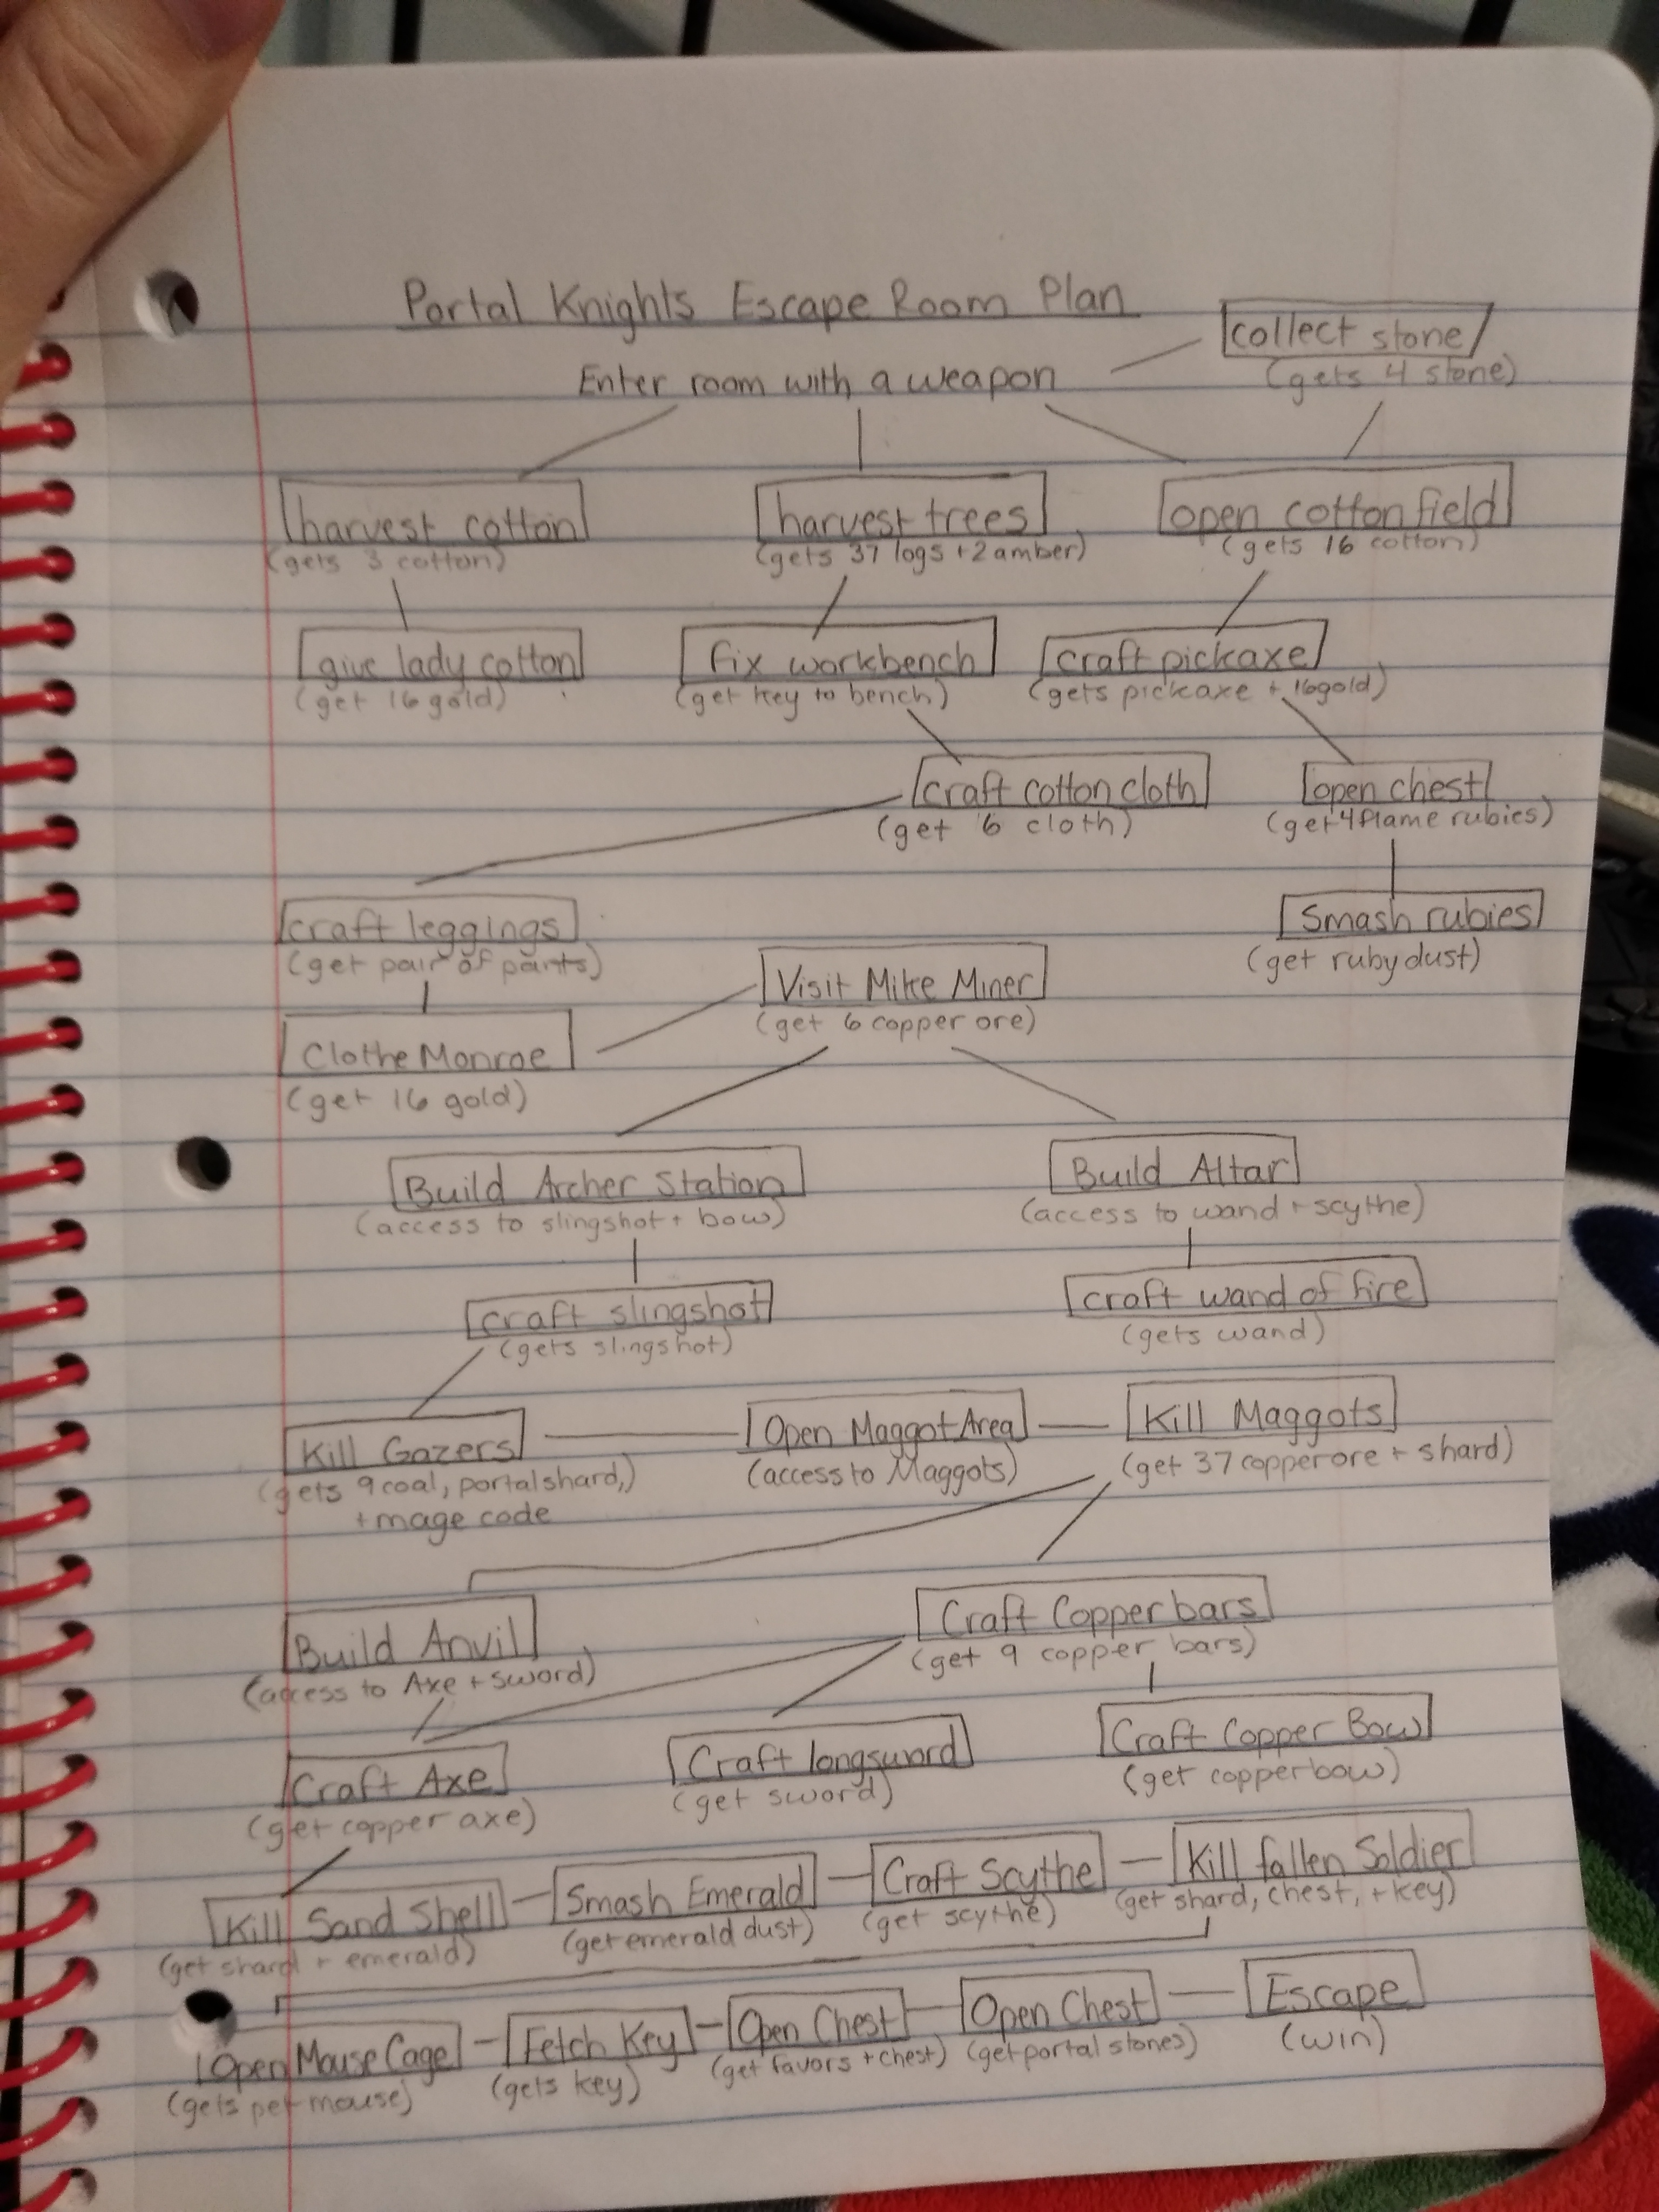 Portal Knights Escape Room Plan
collect stone
(gets 4 stone)
Enter room with a weapon
harvest cotton
(gets 3 cotton)
harvest trees
(gets 37 logs + 2 amber)
open cotton field
(gets 16 cotton)
give lady cotton
(get 16 gold)
fix workbench
(get key to bench)
craft pickaxe
(gets pickaxe + 16gold)
craft cotton cloth
(get 6 cloth)
open chest
(get 4 flame rubies)
craft leggings
(get pair of pants)
Smash rubies
(get ruby dust)
Visit Mike Miner
(get 6 copper ore)
Clothe Monroe
(get 16 gold)
Build Archer Station
(access to slingshot + bow)
Build Altar
(access to wand + scythe)
craft slingshot
(gets slingshot)
craft wand of fire
(gets wand)
Kill Gazers
(gets 9 coal, portal shard,)
+ mage code
Open Maggot Area
(access to Maggots)
Kill Maggots
(get 37 copper ore + shard)
Build Anvil
(access to Axe + sword)
Craft Copper bars
(get 9 copper bars)
Craft Axe
(get copper axe)
Craft longsword
(get sword)
Craft Copper Bow
(get copper bow)
Kill Sand Shell
(get shard + emerald)
Smash Emerald
(get emerald dust)
Craft Scythe
(get scythe)
Kill fallen Soldier
(get shard, chest, + key)
Open Mouse Cage
(gets pet mouse)
Fetch Key
(gets key)
Open Chest
(get favors + chest)
Open Chest
(get portal stones)
Escape
(win)